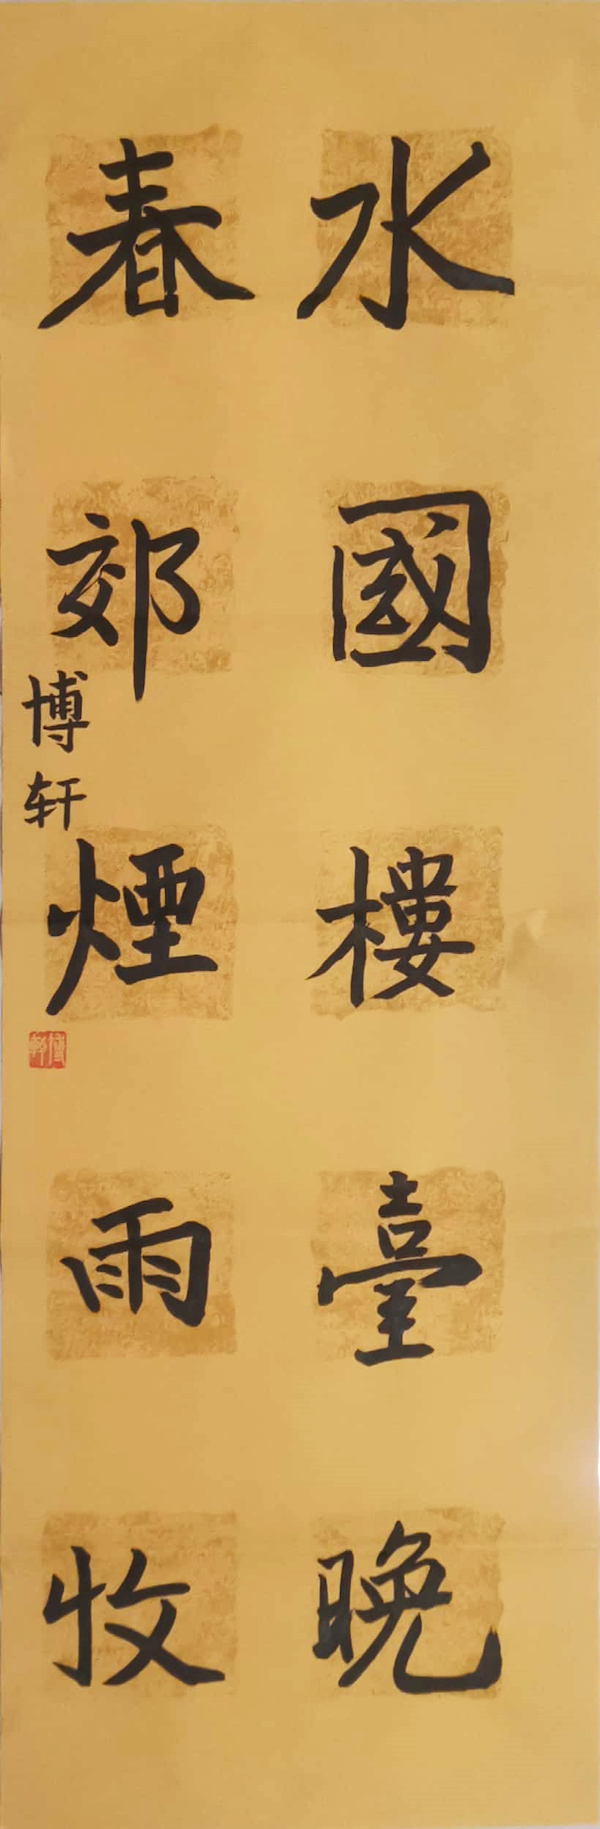 水國樓臺晚
春郊煙雨牧
博轩
博軒